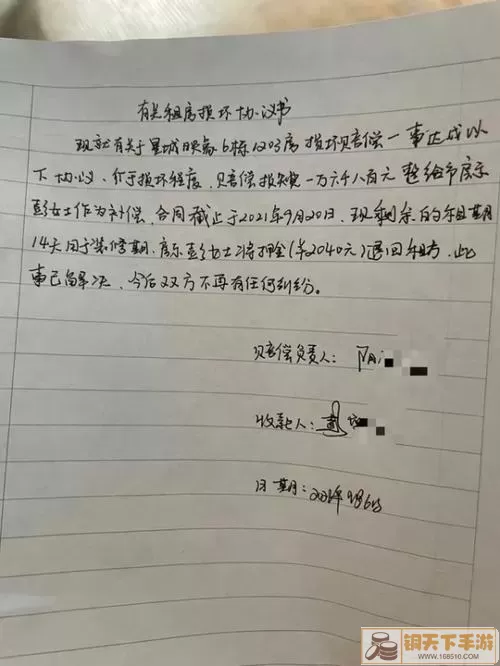 有关租房损坏协议书
现就有关于星城映象6栋1203房损坏赔偿一事达成以
下协议，介于损坏程度，赔偿损失一万六千八百元整给予房东
彭女士作为补偿，合同截止于2021年9月20日，现剩余的租期
14天用于装修期，房东彭女士将押金(共2040元)退回租方，此
事已解决，今后双方不再有任何纠纷。
赔偿负责人：阳
收款人：彭
日期：2021年9月6日
铜天下手游
www.168510.com